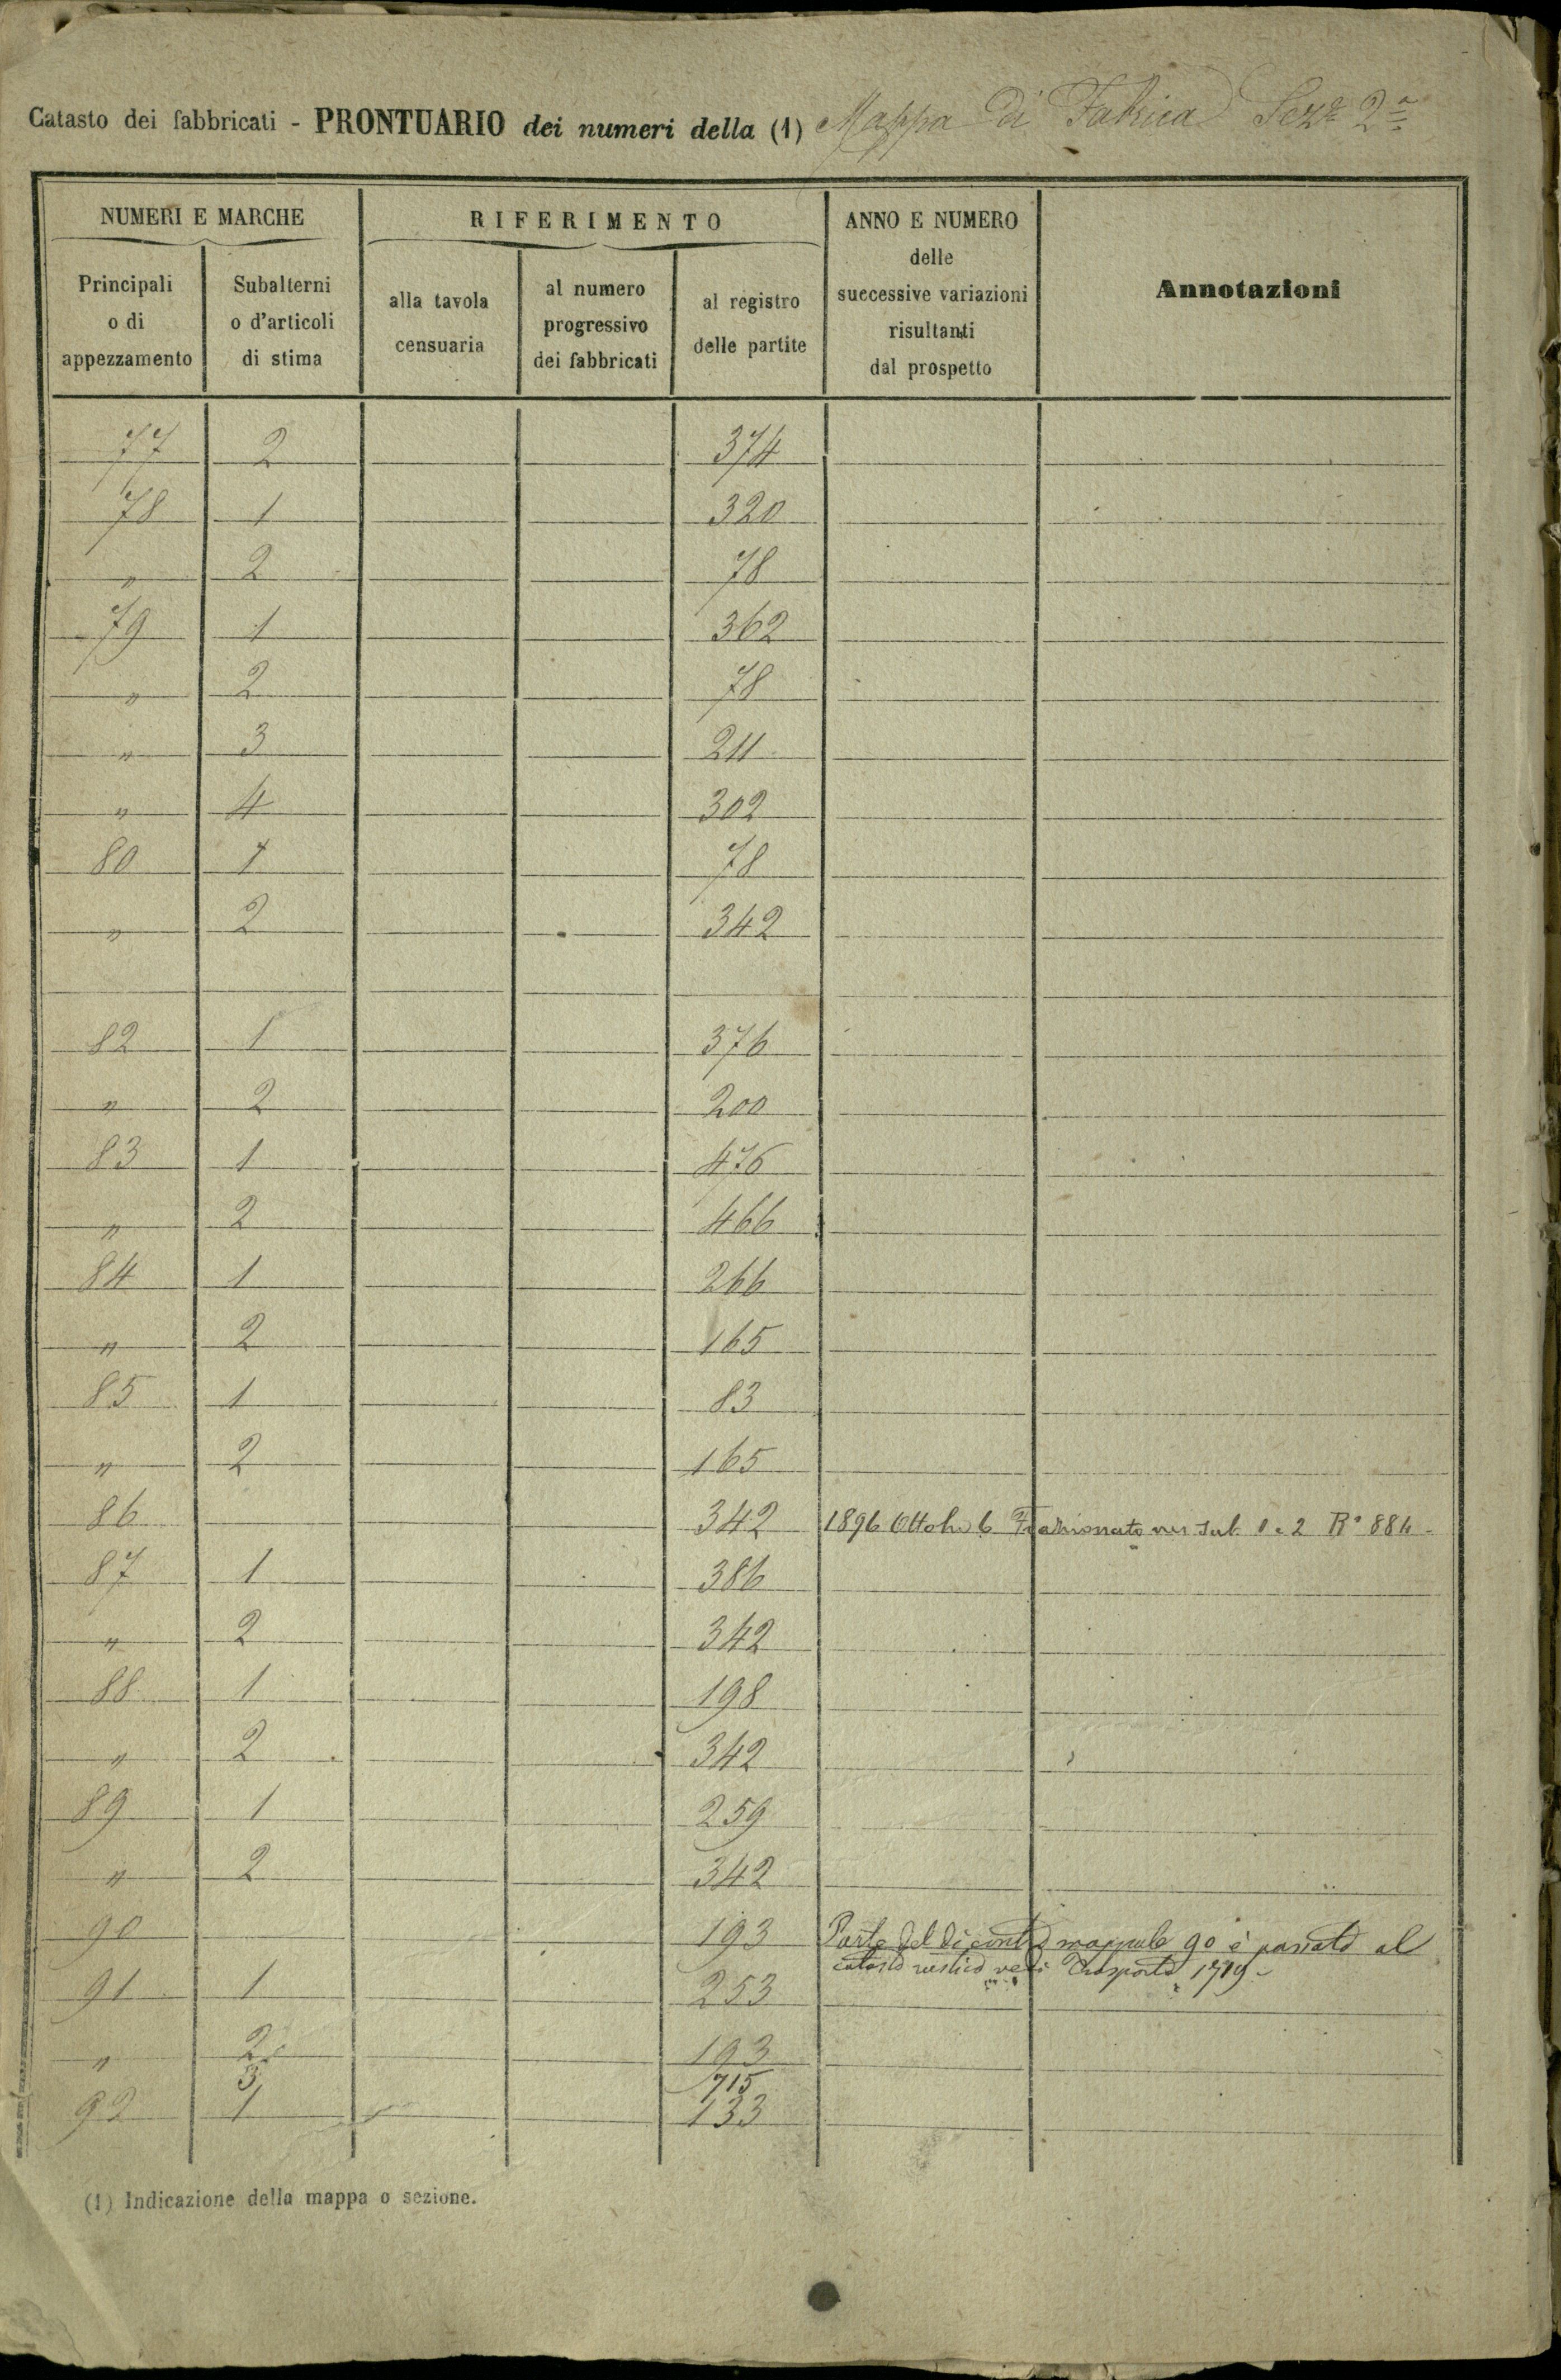 Catasto dei fabbricati - PRONTUARIO dei numeri della (1) Mappa Di Fabrica Sezᵉ 2ª
NUMERI E MARCHE
RIFERIMENTO
ANNO E NUMERO
delle
successive variazioni
risultanti
dal prospetto
Annotazioni
Principali
o di
appezzamento
Subalterni
o d'articoli
di stima
alla tavola
censuaria
al numero
progressivo
dei fabbricati
al registro
delle partite
77 2 374
78 1 320
" 2 78
79 1 362
" 2 78
" 3 211
" 4 302
80 1 78
" 2 342
82 1 376
" 2 200
83 1 476
" 2 466
84 1 266
" 2 165
85 1 83
" 2 165
86 342 1896 Ottobre 6 Frazionato sub. 1 e 2 R° 884
87 1 386
" 2 342
88 1 198
" 2 342
89 1 259
" 2 342
90 193 Parte del mappale 90 è passato al
catasto rustico vedi Trasporto 1719
91 1 253
" 2 193
3 715
92 1 133
(1) Indicazione della mappa o sezione.